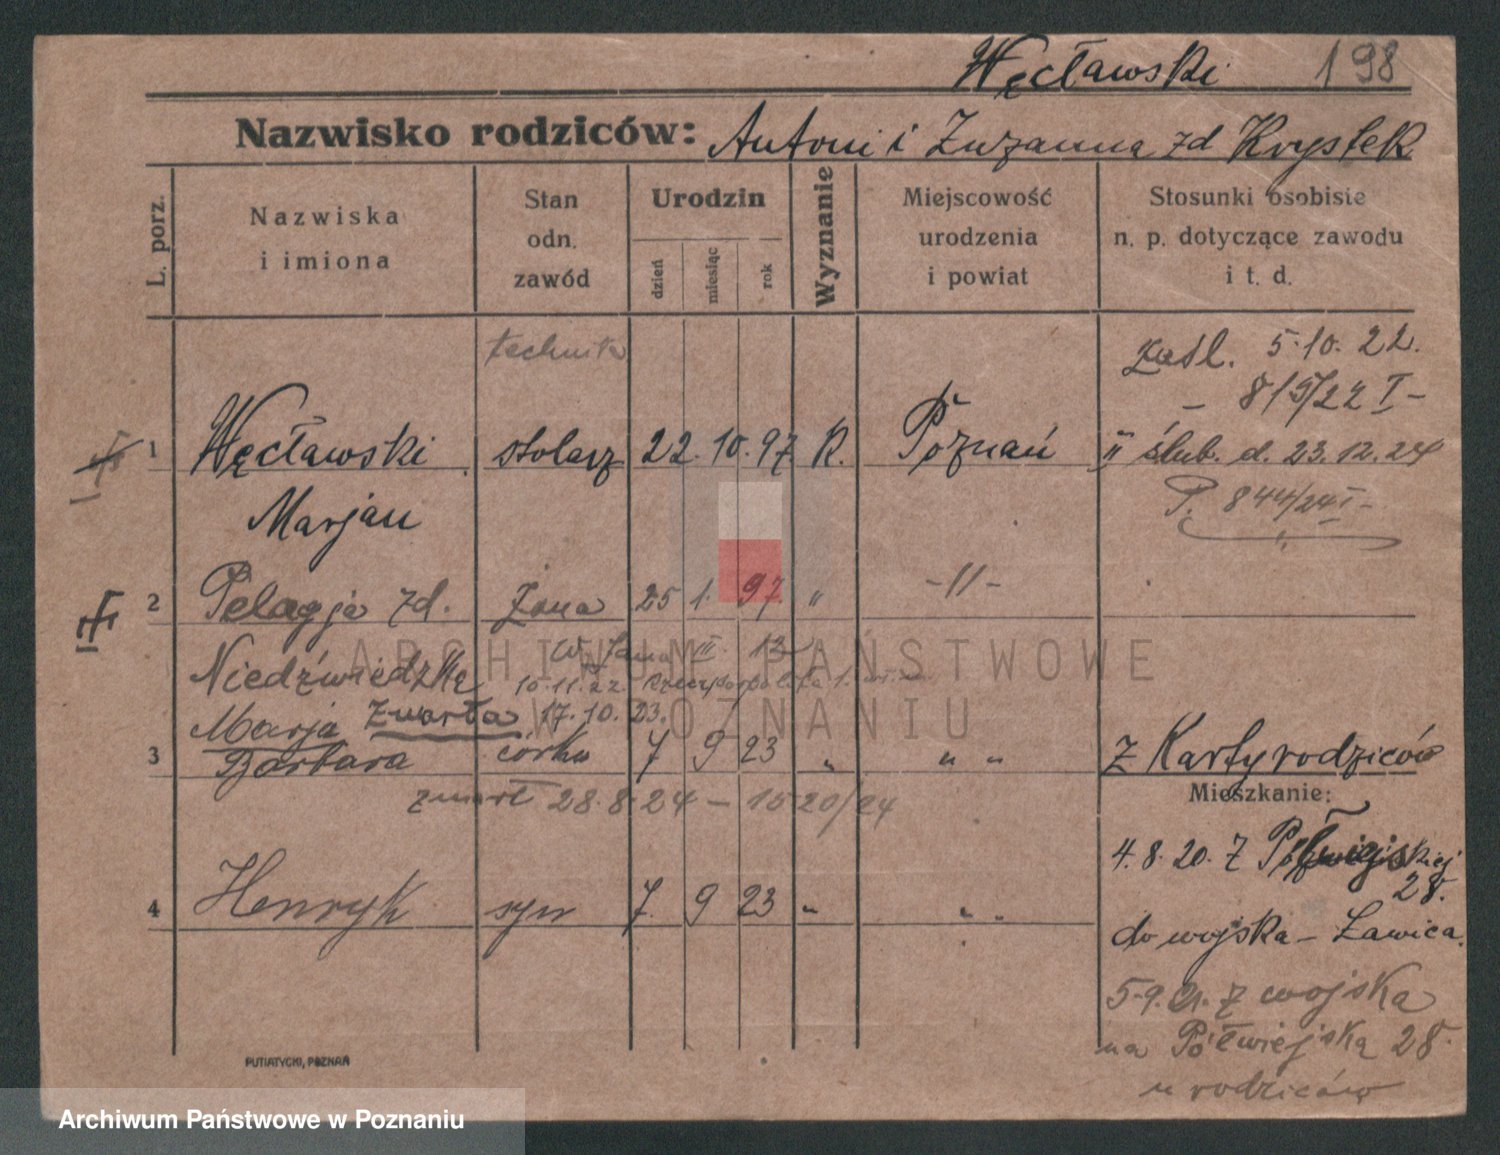 Węcławski 198
Nazwisko rodziców: Antoni i Zuzanna zd Krystek
L. porz.
Nazwiska
i imiona
Stan
odn.
zawód
Urodzin
dzień
miesiąc
rok
Wyznanie
Miejscowość
urodzenia
i powiat
Stosunki osobisie
n. p. dotyczące zawodu
i t. d.
technik
zaśl. 5.10.22.
1 Węcławski stolarz 22. 10. 97 R. Poznań
II ślub. d. 23.12.24
Marjan
P. 844/24 I -
2 Pelagja zd. żona 25 1. 97. " -II-
Niedźwiedzką
10.11.22.
Marja zmarła 17.10.23.
3 Barbara córka 7 9 23 " " "
z Karty rodziców
zmarł 28.8.24 - 1520/24
Mieszkanie:
4.8.20. z Półwiejskiej
28.
4 Henryk syn 7. 9 23 " " "
do wojska - Ławica.
5.9.21. z wojska
na Półwiejską 28.
u rodziców
PUTIATYCKI, POZNAŃ
ARCHIWUM PAŃSTWOWE
W POZNANIU
Archiwum Państwowe w Poznaniu